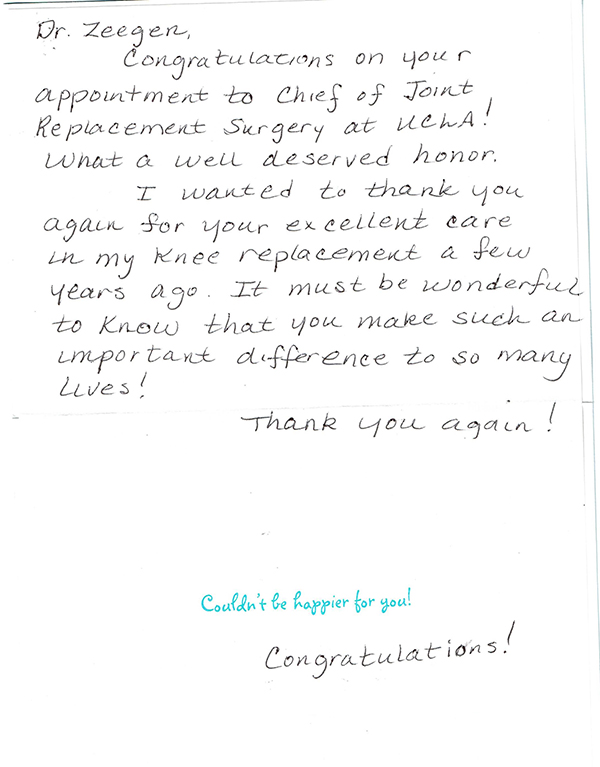 Dr. Zeegen,
Congratulations on your
appointment to Chief of Joint
Replacement Surgery at UCLA!
What a well deserved honor.
I wanted to thank you
again for your excellent care
in my knee replacement a few
years ago. It must be wonderful
to know that you make such an
important difference to so many
lives!
Thank you again!
Couldn't be happier for you!
Congratulations!